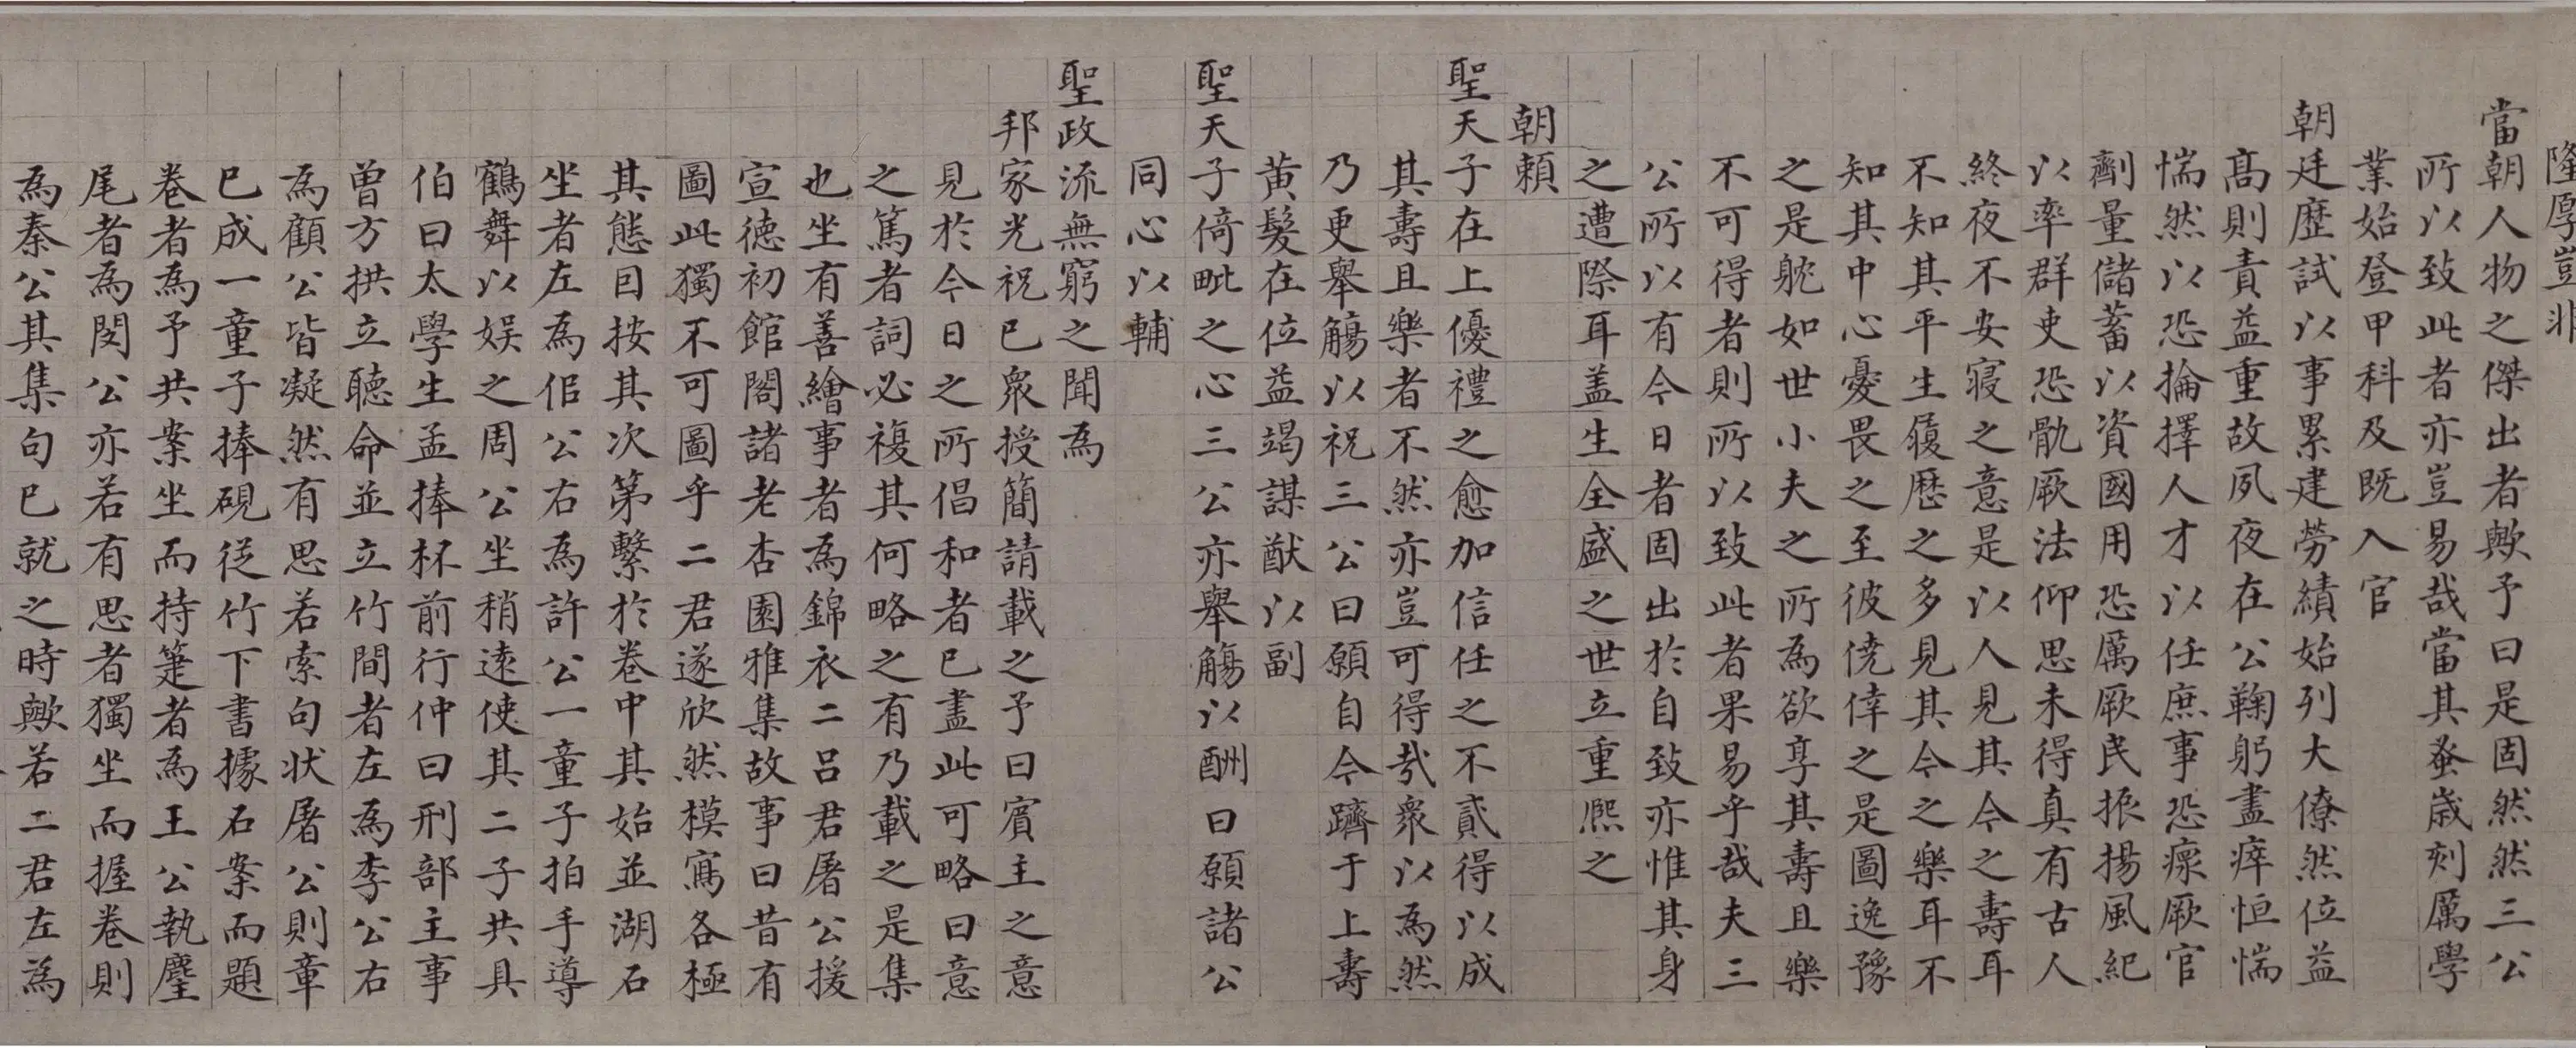 隆厚豈非
當朝人物之傑出者歟予曰是固然然三公
所以致此者亦豈易哉當其蚤歲刻厲學
業始登甲科及既入官
朝廷歷試以事累建勞績始列大僚然位益
高則責益重故夙夜在公鞠躬盡瘁恒惴
惴然以恐掄擇人才以任庶事恐瘝厥官
劑量儲蓄以資國用恐厲厥民振揚風紀
以率群吏恐骫厥法仰思未得真有古人
終夜不安寢之意是以人見其今之壽耳
不知其平生履歷之多見其今之樂耳不
知其中心憂畏之至彼僥倖之是圖逸豫
之是躭如世小夫之所為欲享其壽且樂
不可得者則所以致此者果易乎哉夫三
公所以有今日者固出於自致亦惟其身
之遭際耳盖生全盛之世立重熈之
朝賴
聖天子在上優禮之愈加信任之不貳得以成
其壽且樂者不然亦豈可得哉衆以為然
乃更舉觴以祝三公曰願自今躋于上壽
黄髮在位益竭謀猷以副
聖天子倚毗之心三公亦舉觴以酬曰願諸公
同心以輔
聖政流無窮之聞為
邦家光祝已衆授簡請載之予曰賓主之意
見於今日之所倡和者已盡此可略曰意
之篤者詞必複其何略之有乃載之是集
也坐有善繪事者為錦衣二吕君屠公援
宣徳初館閣諸老杏園雅集故事曰昔有
圖此獨不可圖乎二君遂欣然模寫各極
其態目按其次第繫於卷中其始並湖石
坐者左為佀公右為許公一童子拍手導
鶴舞以娱之周公坐稍逺使其二子共具
伯曰太學生孟捧杯前行仲曰刑部主事
曾方拱立聽命並立竹間者左為李公右
為顧公皆凝然有思若索句状屠公則章
已成一童子捧硯從竹下書據石案而題
卷者為予共案坐而持箑者為王公執麈
尾者為閔公亦若有思者獨坐而握卷則
為秦公其集句已就之時歟若二君左為